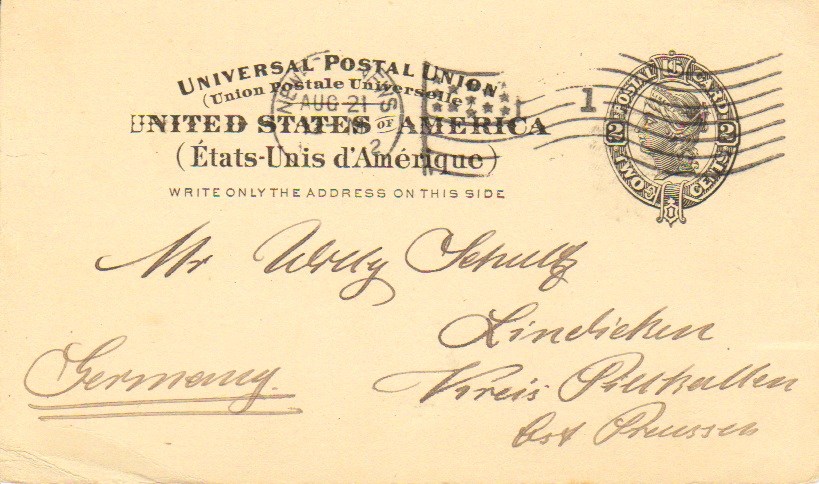 UNIVERSAL POSTAL UNION
(Union Postale Universelle
UNITED STATES OF AMERICA
(États-Unis d'Amérique)
WRITE ONLY THE ADDRESS ON THIS SIDE
AUG 21
1
2
POSTAL CARD
2 2
CENTS
Mr Willy Schultz
Lindicken
Kreis Pillkallen
Ost Preussen
Germany.